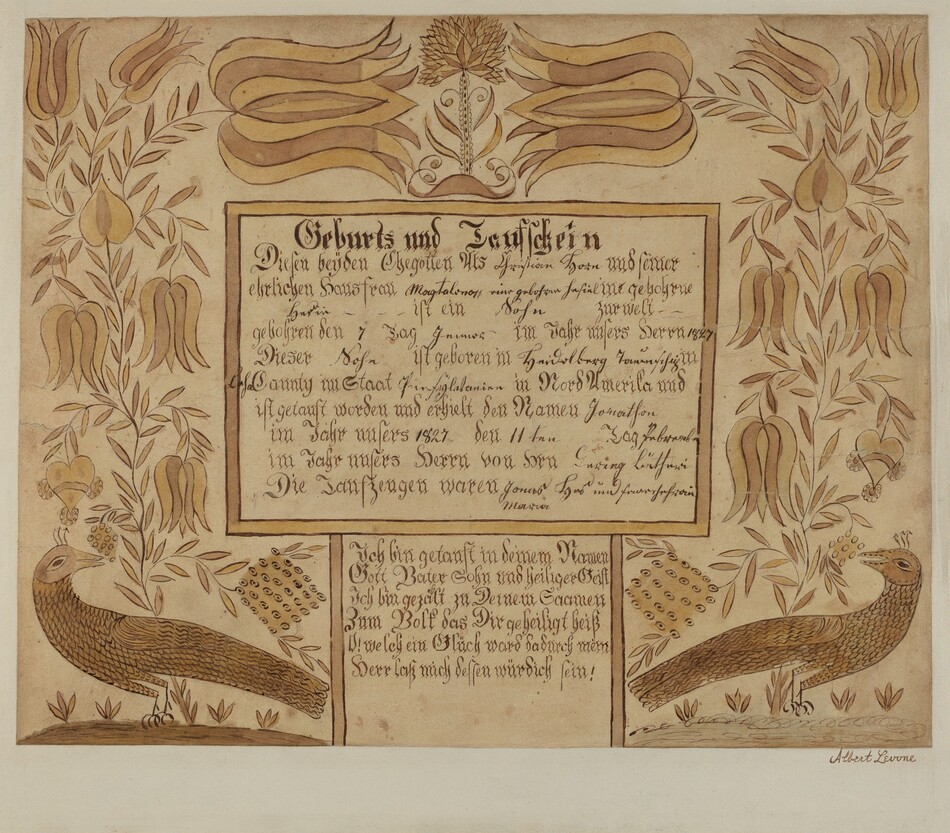 Geburts und Taufschein
Diesen beyden Ehegotten Als Christian Horn und seiner
ehrlichen Hausfrau Magtalena eine gebohrne
ist ein Sohn zur welt
gebohren den 7 Tag Jenner im Jahr unsers Herrn 1827
Dieser Sohn ist geboren in Heidelberg Taunschip in
Caunty im Staat in Nord Amerika und
ist getauft worden und erhielt den Namen Jonathon
im Jahr unsers 1827 den 11 ten Tag
im Jahr unsers Herrn von Hrn
Die Taufzeugen waren Jonas Hes und
Maria
Ich bin getauft in deinem Namen
Gott Vater Sohn und heiliger Geist
Ich bin gezält zu Deinem Saamen
Zum Volk das Dir geheiligt heiß
O! welch ein Glück ward dadurch mein
Herr laß mich dessen würdich sein!
Albert Levone